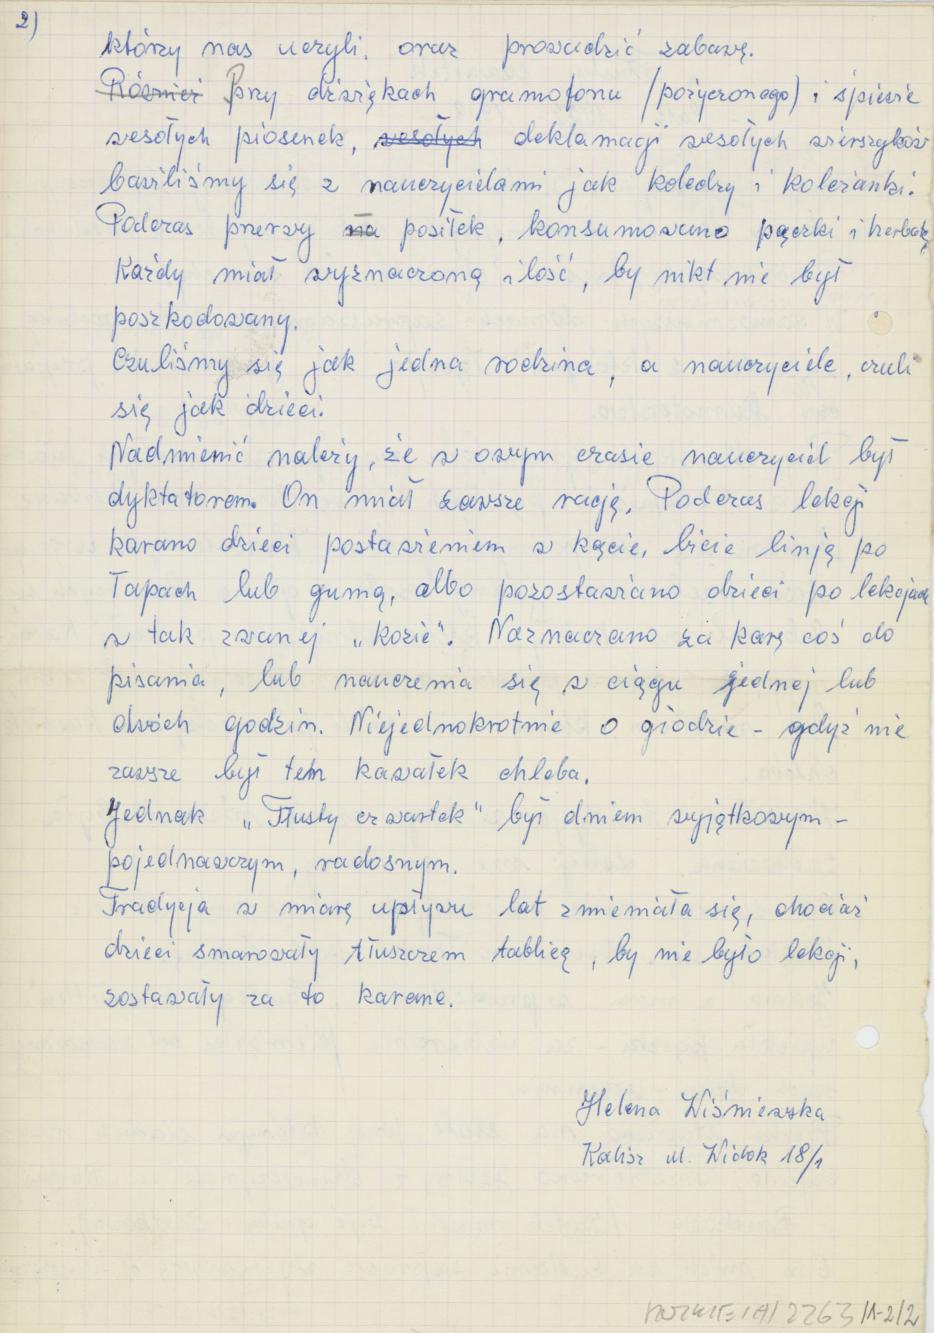 2)
którzy nas uczyli, oraz prowadzić zabawę.
Również Przy dźwiękach gramofonu (pożyczonego) i śpiewie
wesołych piosenek, wesołych deklamacji wesołych wierszyków
bawiliśmy się z nauczycielami jak koledzy i koleżanki.
Podczas przerwy na posiłek, konsumowano pączki i herbatę.
Każdy miał wyznaczoną ilość, by nikt nie był
poszkodowany.
Czuliśmy się jak jedna rodzina, a nauczyciele, czuli
się jak dzieci.
Nadmienić należy, że w owym czasie nauczyciel był
dyktatorem. On miał zawsze rację. Podczas lekcji
karano dzieci postawieniem w kącie, bicie linją po
łapach lub gumą, albo pozostawiano dzieci po lekcjach
w tak zwanej „kozie". Naznaczano za karę coś do
pisania, lub nauczenia się w ciągu jednej lub
dwóch godzin. Niejednokrotnie o głodzie - gdyż nie
zawsze był ten kawałek chleba.
Jednak „Tłusty czwartek" był dniem wyjątkowym -
pojednawczym, radosnym.
Tradycja w miarę upływu lat zmieniała się, chociaż
dzieci smarowały tłuszczem tablicę, by nie było lekcji,
zostawały za to karane.
Helena Wiśniewska
Kalisz ul. Widok 18/1
2263/1-2/2